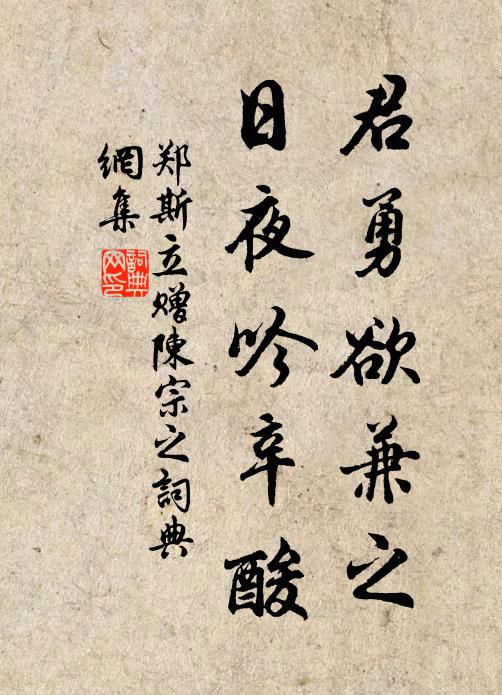 君勇欲兼之
日夜吟辛酸
郑斯立赠陳宗之詞典
網集
詞典
网印